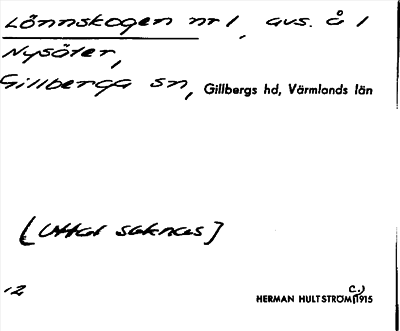 Lönnskogen nr 1, avs. å 1
Nysäter,
Gillberga sn, Gillbergs hd, Värmlands län
[Uttal saknas]
12
HERMAN HULTSTRÖM (c.) 1915